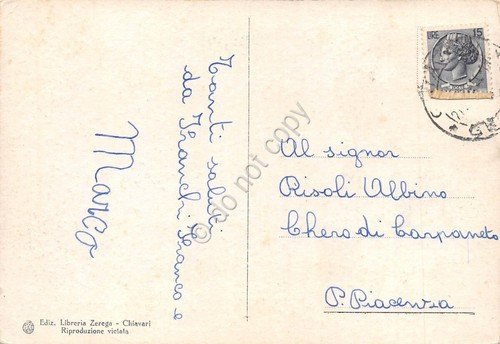 Tanti saluti
da Franchi Franco e
Marco
Al signor
Risoli Albino
Chero di Carpaneto
P. Piacenza
15
Ediz. Libreria Zerega - Chiavari
Riproduzione vietata
do not copy